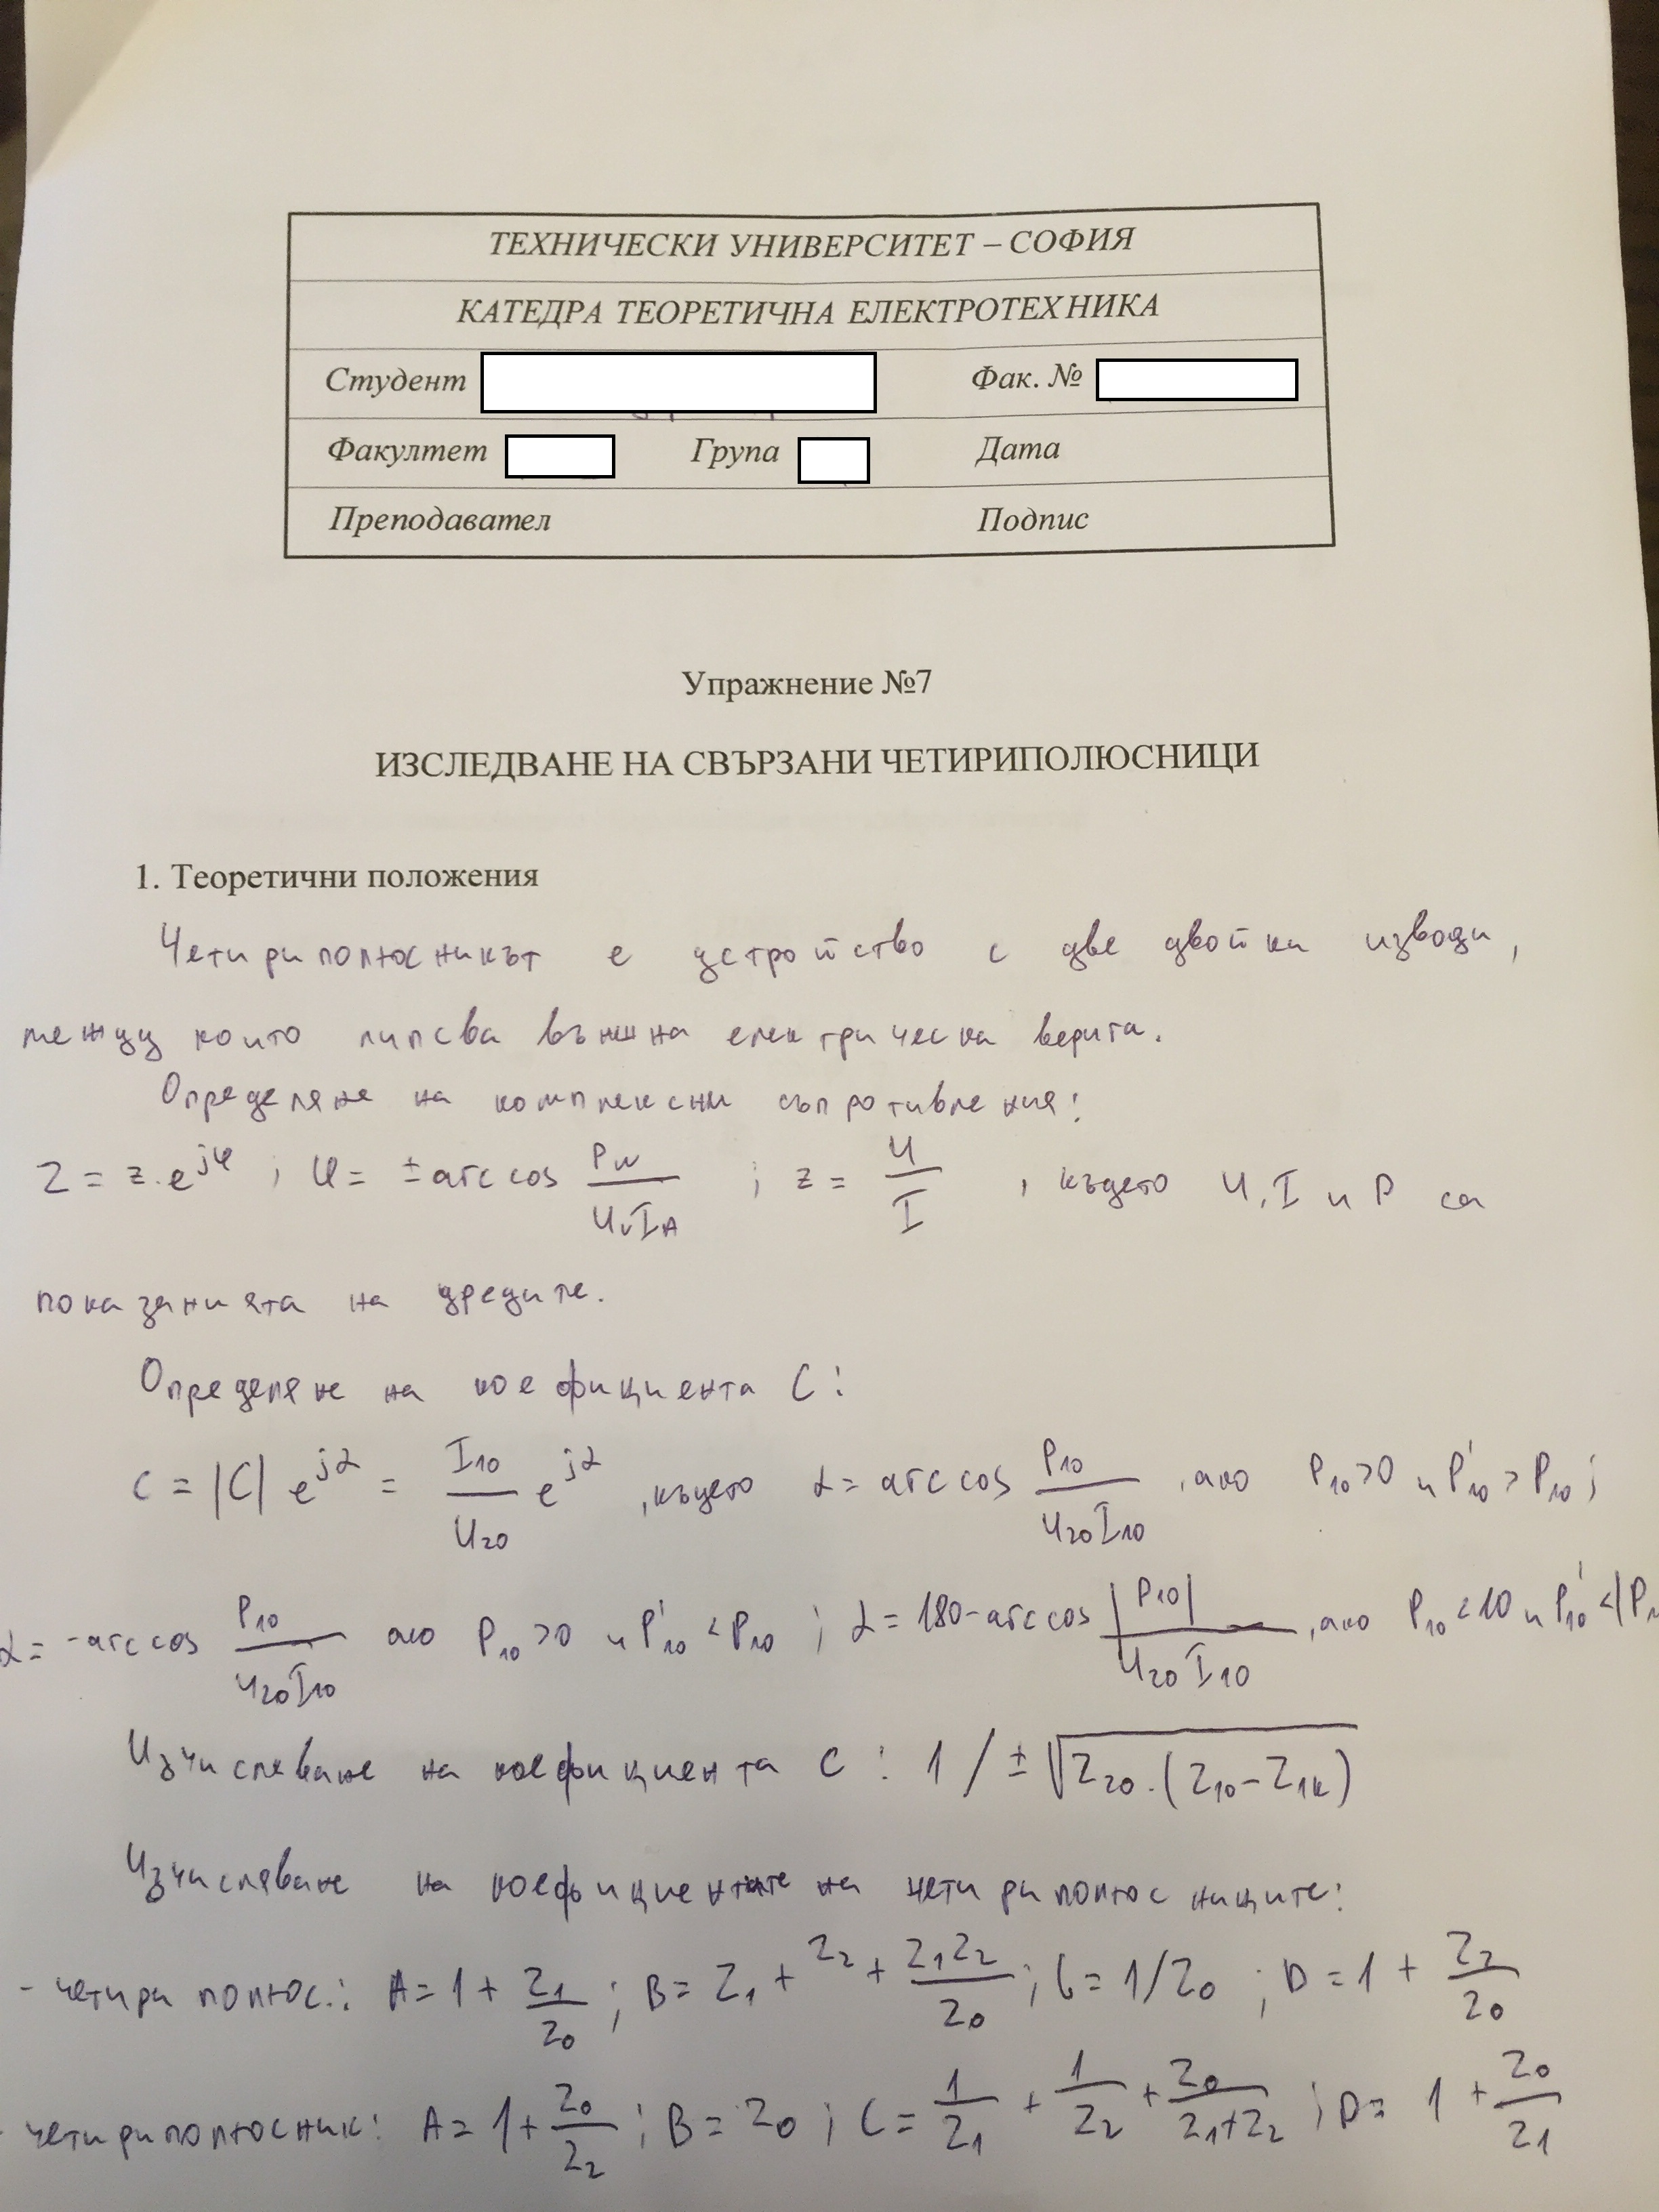 ТЕХНИЧЕСКИ УНИВЕРСИТЕТ – СОФИЯ
КАТЕДРА ТЕОРЕТИЧНА ЕЛЕКТРОТЕХНИКА
Студент Фак. №
Факултет Група Дата
Преподавател Подпис
Упражнение №7
ИЗСЛЕДВАНЕ НА СВЪРЗАНИ ЧЕТИРИПОЛЮСНИЦИ
1. Теоретични положения
Четириполюсникът е устройство с две двойки изводи,
между които липсва външна електрическа верига.
Определяне на комплексни съпротивления:
Z = z.e^jφ ; φ = ± arccos P_W / U_V I_A ; z = U / I , където U, I и P са
показанията на уредите.
Определяне на коефициента C:
C = |C| e^jα = I₁₀ / U₂₀ e^jα , където α = arccos P₁₀ / U₂₀I₁₀ , ако P₁₀>0 и P'₁₀ > P₁₀ ;
α = -arccos P₁₀ / U₂₀I₁₀ ако P₁₀>0 и P'₁₀ < P₁₀ ; α = 180-arccos |P₁₀| / U₂₀I₁₀ , ако P₁₀<10 и P'₁₀ <|P₁
Изчисляване на коефициента C : 1 / ± √Z₂₀.(Z₁₀-Z₁к)
Изчисляване на коефициентите на четириполюсниците:
- четириполюс.: A = 1 + Z₁/Z₀ ; B = Z₁ + Z₂ + Z₁Z₂/Z₀ ; C = 1/Z₀ ; D = 1 + Z₂/Z₀
- четириполюсник: A = 1 + Z₀/Z₂ ; B = Z₀ ; C = 1/Z₁ + 1/Z₂ + Z₀/Z₁+Z₂ ; D = 1 + Z₀/Z₁